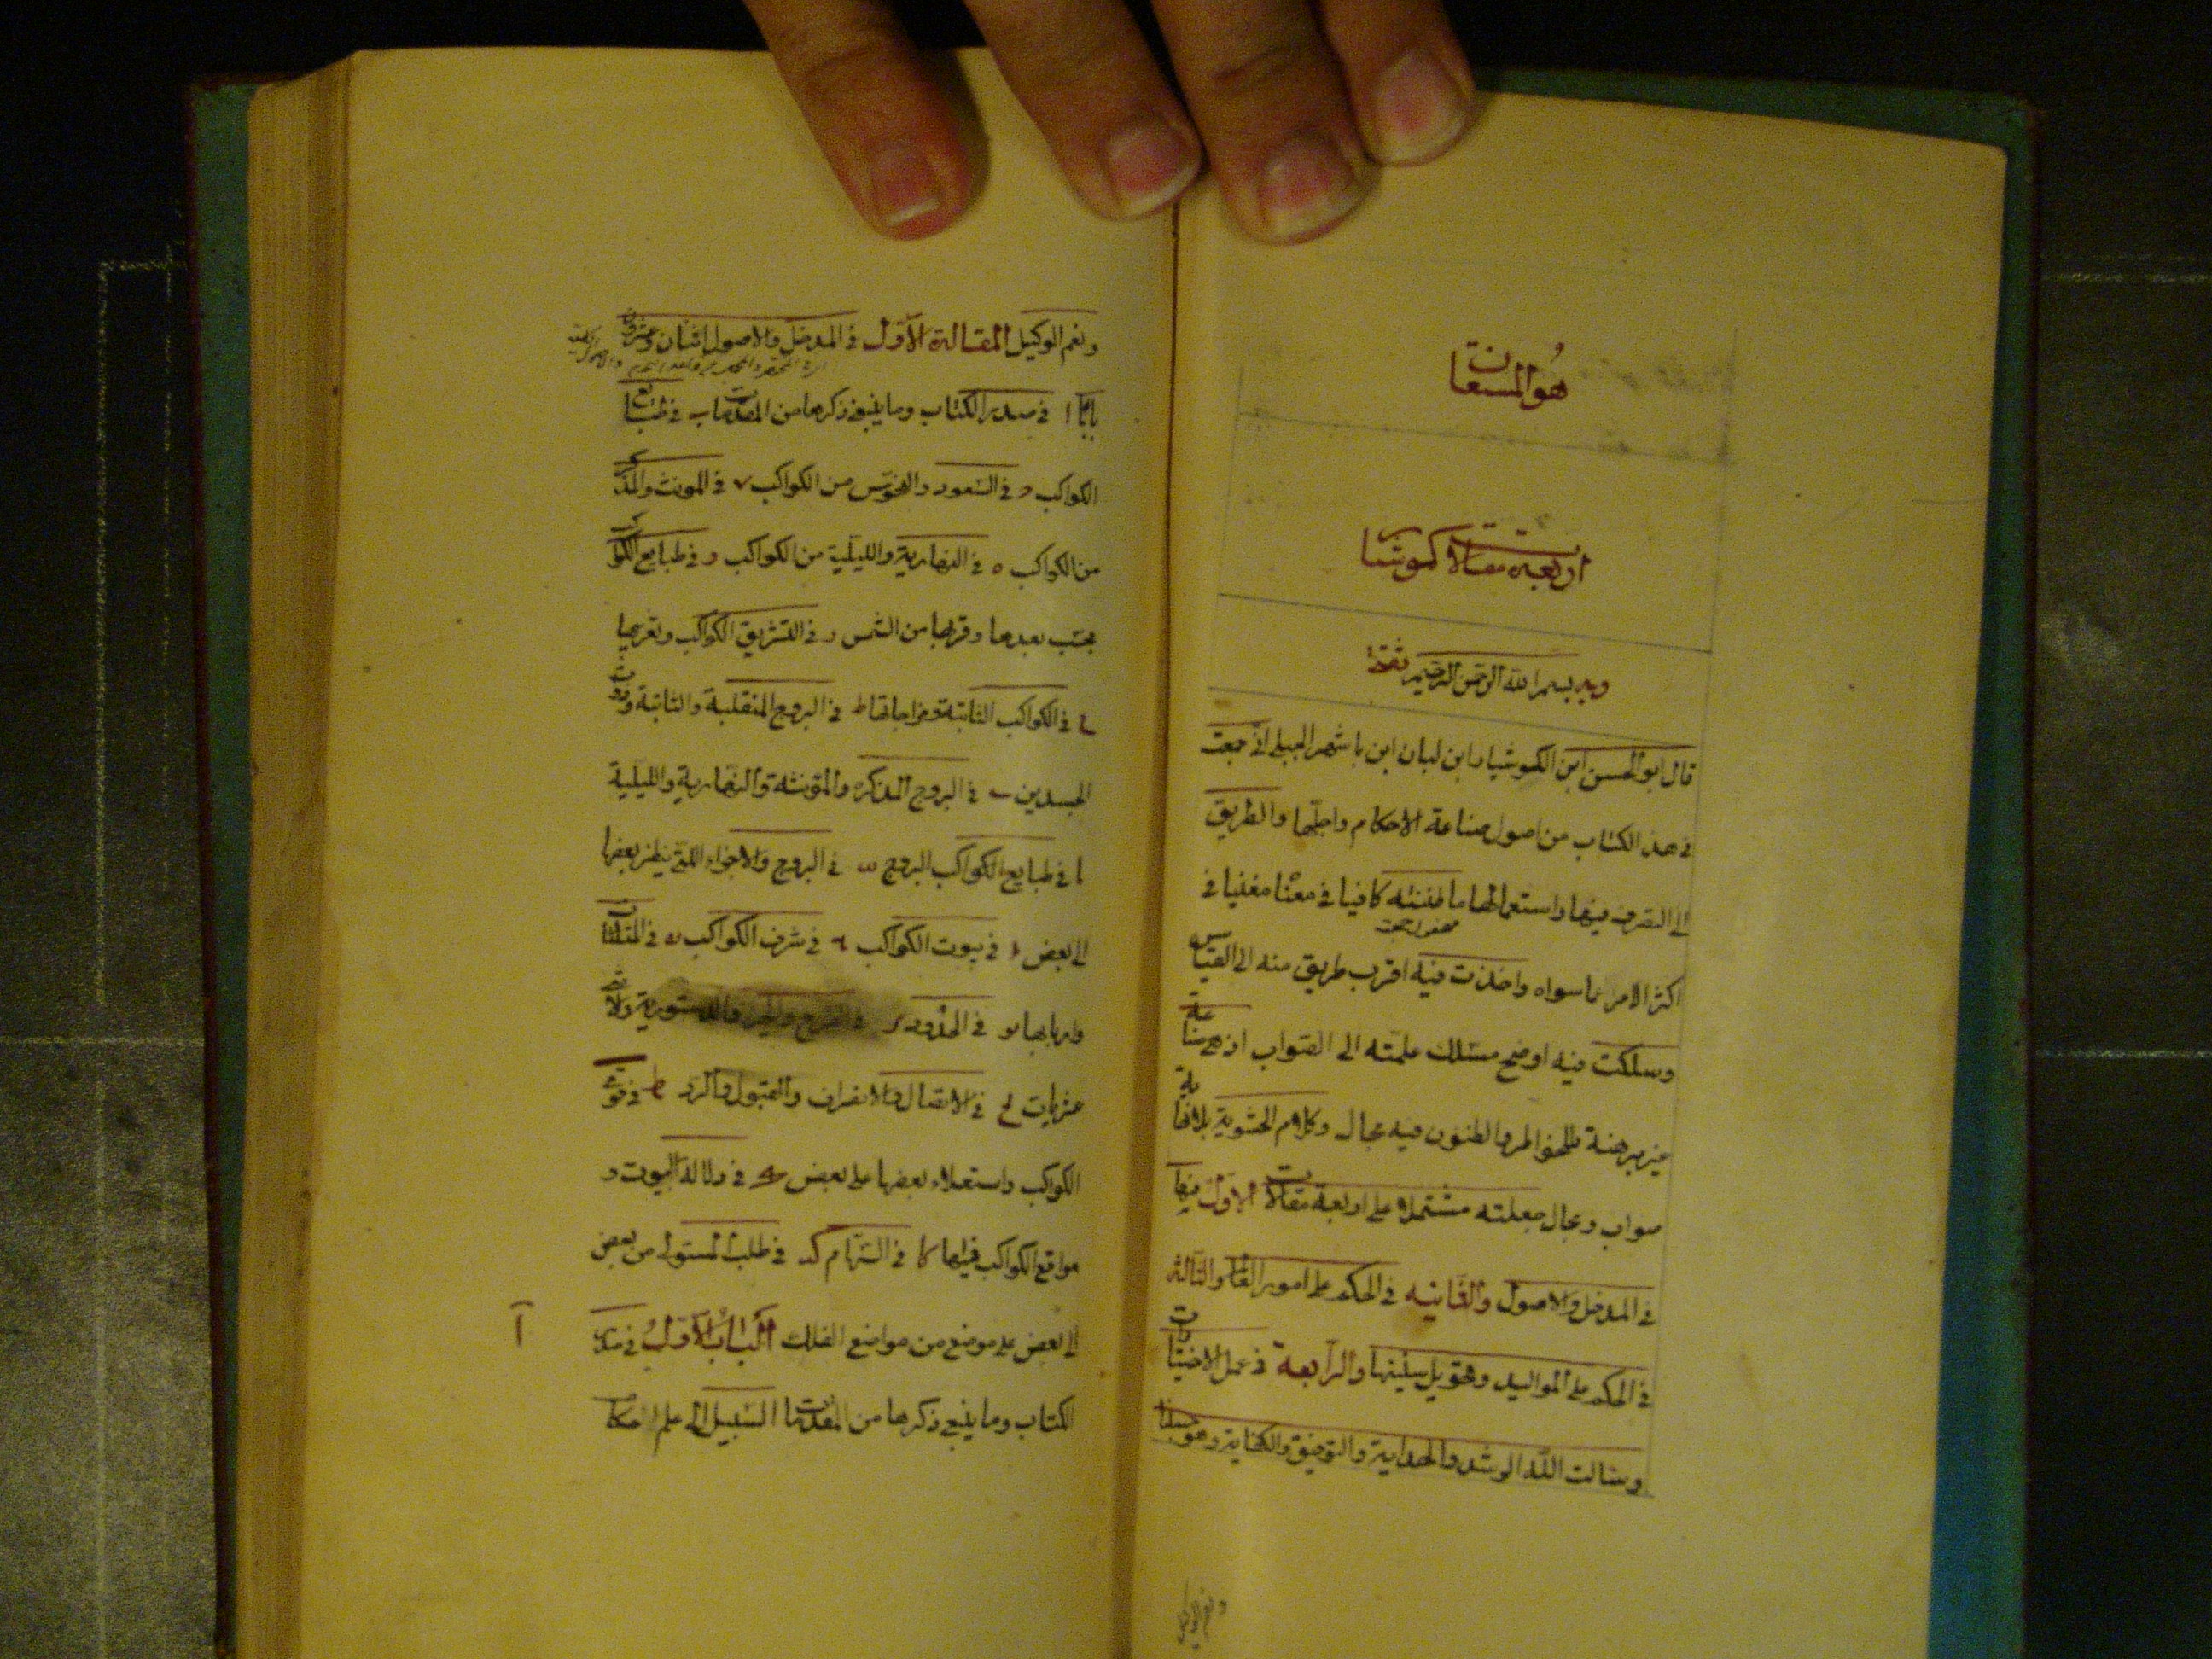 هو المستعان
اربعة مقالات كوشيار
وبه بسم الله الرحمن الرحيم ثقتى
قال ابو الحسن ابن الكوشيار ابن لبان ابن باشهر الجيلى انى جمعت
فى هذ الكتاب من اصول صناعة الاحكام واجلها والطريق
الى التصرف فيها واستعمالها ما ظننته كافيا فى معنا مغنيا فى
اكثر الامر ما سواه واخذت فيه اقرب طريق منه الى القياس
وسلكت فيه اوضح مسلك علمته الى الصواب اذ هى صناعة
غير برهنة للخواطر والظنون فيه مجال وكلام الحشوية بلا نهاية
صواب ومجال جعلته مشتملا على اربعة مقالات الاول منها
فى المدخل والاصول والثانيه فى الحكم على امور العالم والثالثة
فى الحكم على المواليد وتحويل سنينها والرابعة فى عمل الاختيارات
وسالت الله الرشد والهداية والتوفيق والكفاية وهو حسبنا
ونعم الوكيل
ونعم الوكيل المقالة الاول فى المدخل والاصول اثنان وعشرون
بابا ا فى صدر الكتاب وما ينبغى ذكرها من المقدمات ب فى طبايع
الكواكب و فى السعود والنحوس من الكواكب فى المونث والمذكر
من الكواكب ه فى النهارية والليلية من الكواكب و فى طبايع الكواكب
بحسب بعدها وقربها من الشمس ر فى التشريق الكواكب وتغريبها
ح فى الكواكب الثابتة ومزاجاتها ط فى البروج المنقلبة والثابتة وذوات
الجسدين ى فى البروج المذكره والمؤنثة والنهارية والليلية
يا فى طبايع الكواكب البروج يب فى البروج والاجزاء اللتى ينظر بعضها
الى بعض فى بيوت الكواكب فى شرف الكواكب يه فى المثلثات
واربابها يو فى الحدود والدستورية والاثنى
عشريات يح فى الاتصال والانصراف والقبول والرد فى قوة
الكواكب واستعلاء بعضها على بعض فى دلالة البيوت و
مواقع الكواكب فيها كا فى السهام كب فى طلب المستولى من بعض
الى بعض على موضع من مواضع الفلك الباب الاول فى صدر
آ
الكتاب وما ينبغى ذكرها من المقدمات السبيل الى علم احكام